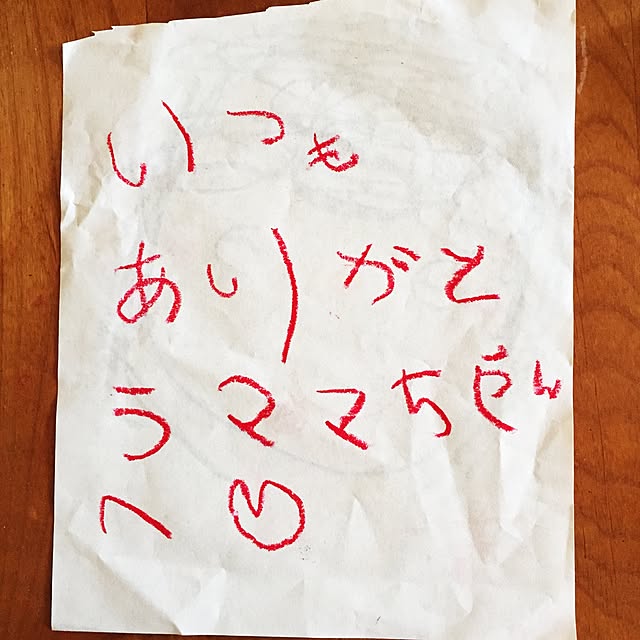 いつも
ありがと
うママちゃん
へ♡